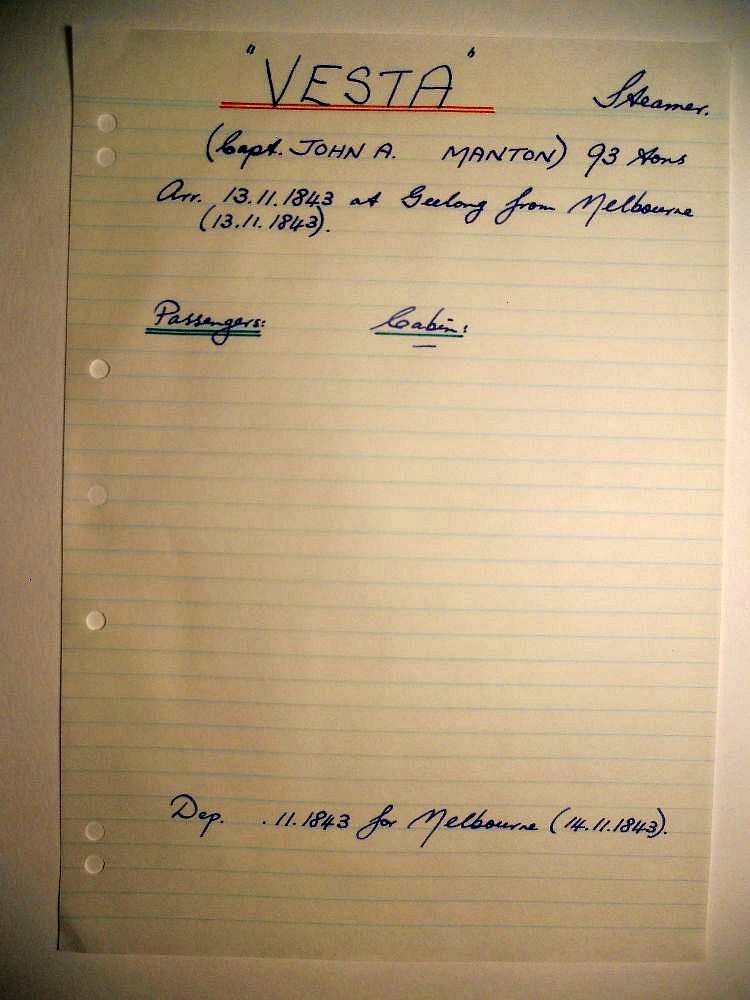 "VESTA" Steamer.
(Capt. JOHN A. MANTON) 93 tons
Arr. 13.11.1843 at Geelong from Melbourne
(13.11.1843).
Passengers: Cabin:
Dep. .11.1843 for Melbourne (14.11.1843).